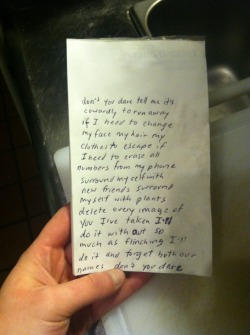 don't you dare tell me it's
cowardly to run away
if I need to change
my face my hair my
clothes to escape if
I need to erase all
numbers from my phone
surround myself with
new friends surround
myself with plants
delete every image of
you I've taken I'll
do it without so
much as flinching I'll
do it and forget both our
names don't you dare